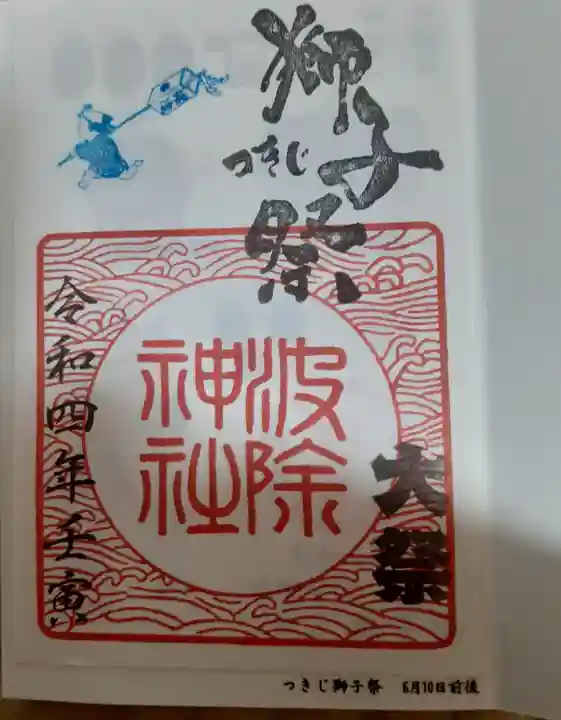 つきじ
獅子祭
波除
神社
大祭
令和四年壬寅
つきじ獅子祭 6月10日前後